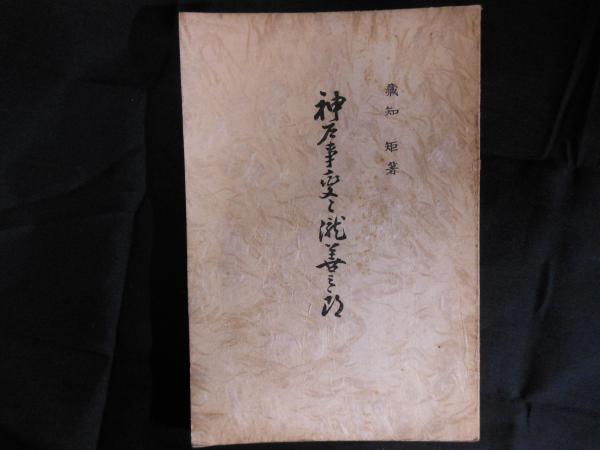 藏知 矩 著
神戸事變と瀧善三郎